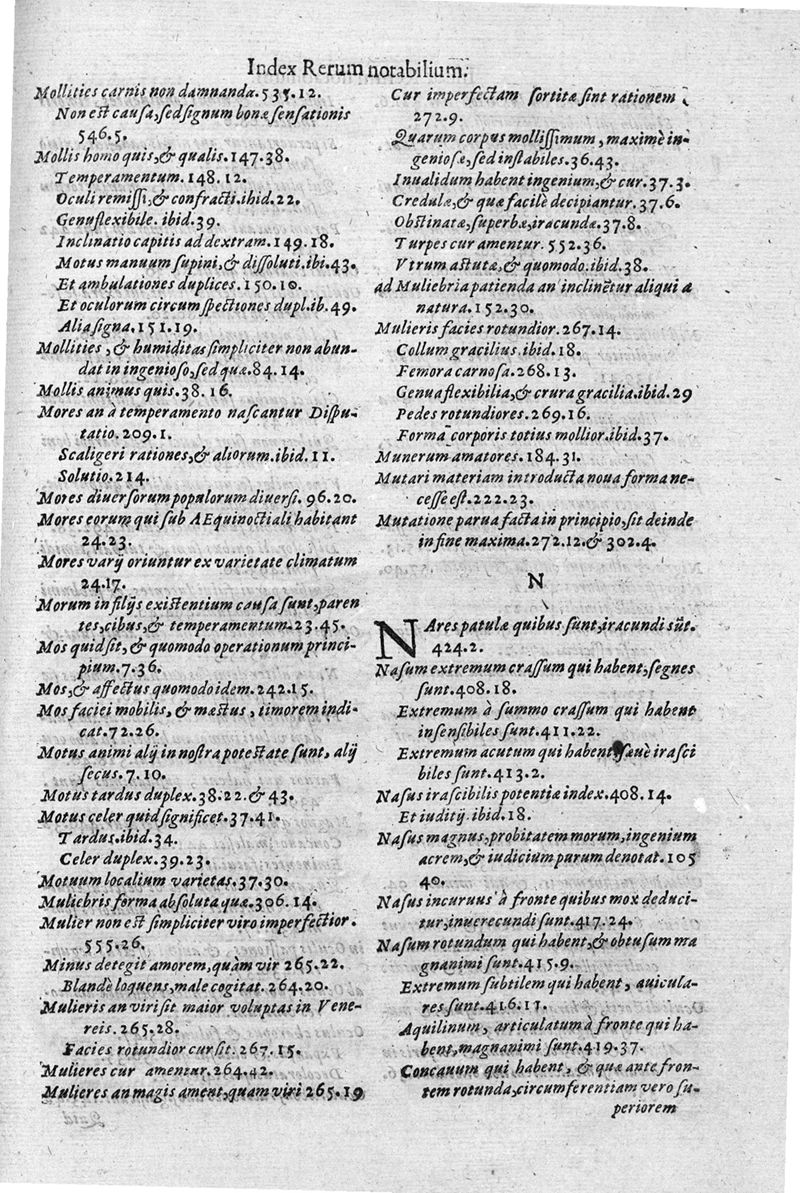 Index Rerum notabilium.
Mollities carnis non damnanda.535.12.
Non est causa, sed signum bonæ sensationis
546.5.
Mollis homo quis, & qualis.147.38.
Temperamentum.148.12.
Oculi remissi, & confracti.ibid.22.
Genuflexibile. ibid.39.
Inclinatio capitis ad dextram.149.18.
Motus manuum supini, & dissoluti.ibi.43.
Et ambulationes duplices.150.10.
Et oculorum circumspectiones dupl.ib.49.
Alia signa.151.19.
Mollities, & humiditas simpliciter non abun-
dat in ingenioso, sed quæ.84.14.
Mollis animus quis.38.16.
Mores an à temperamento nascantur Dispu-
tatio.209.1.
Scaligeri rationes, & aliorum.ibid.11.
Solutio.214.
Mores diuersorum populorum diuersi. 96.20.
Mores eorum qui sub AEquinoctiali habitant
24.23.
Mores varij oriuntur ex varietate climatum
24.17.
Morum in filijs existentium causa sunt, paren
tes, cibus, & temperamentum.23.45.
Mos quid sit, & quomodo operationum princi-
pium.7.36.
Mos, & affectus quomodo idem.242.15.
Mos faciei mobilis, & mæstus, timorem indi-
cat.72.26.
Motus animi alij in nostra potestate sunt, alij
secus.7.10.
Motus tardus duplex.38.22.& 43.
Motus celer quid significet.37.41.
Tardus.ibid.34.
Celer duplex.39.23.
Motuum localium varietas.37.30.
Muliebris forma absoluta quæ.306.14.
Mulier non est simpliciter viro imperfectior.
555.26.
Minus detegit amorem, quàm vir 265.22.
Blandè loquens, male cogitat.264.20.
Mulieris an viri sit maior voluptas in Vene-
reis.265.28.
Facies rotundior cur sit.267.15.
Mulieres cur amentur.264.42.
Mulieres an magis ament, quam viri 265.19
Cur imperfectam sortitæ sint rationem
272.9.
Quarum corpus mollissimum, maximè in-
geniosæ, sed instabiles.36.43.
Inualidum habent ingenium, & cur.37.3.
Credulæ, & quæ facilè decipiantur.37.6.
Obstinatæ, superbæ, iracundæ.37.8.
Turpes cur amentur.552.36.
Vtrum astutæ, & quomodo.ibid.38.
ad Muliebria patienda an inclinẽtur aliqui a
natura.152.30.
Mulieris facies rotundior.267.14.
Collum gracilius.ibid.18.
Femora carnosa.268.13.
Genua flexibilia, & crura gracilia.ibid.29
Pedes rotundiores.269.16.
Forma corporis totius mollior.ibid.37.
Munerum amatores.184.31.
Mutari materiam introducta noua forma ne-
cesse est.222.23.
Mutatione parua facta in principio, fit deinde
in fine maxima.272.12.& 302.4.
N
NAres patulæ quibus sunt, iracundi sũt.
424.2.
Nasum extremum crassum qui habent, segnes
sunt.408.18.
Extremum à summo crassum qui habent
insensibiles sunt.411.22.
Extremum acutum qui habent sæuè irasci
biles sunt.413.2.
Nasus irascibilis potentiæ index.408.14.
Et iuditij.ibid.18.
Nasus magnus, probitatem morum, ingenium
acrem, & iudicium parum denotat.105
40.
Nasus incuruus à fronte quibus mox deduci-
tur, inuerecundi sunt.417.24.
Nasum rotundum qui habent, & obtusum ma
gnanimi sunt.415.9.
Extremum subtilem qui habent, auicula-
res sunt.416.17.
Aquilinum, articulatum à fronte qui ha-
bent, magnanimi sunt.419.37.
Concauum qui habent, & quæ ante fron-
tem rotunda, circumferentiam vero su-
periorem